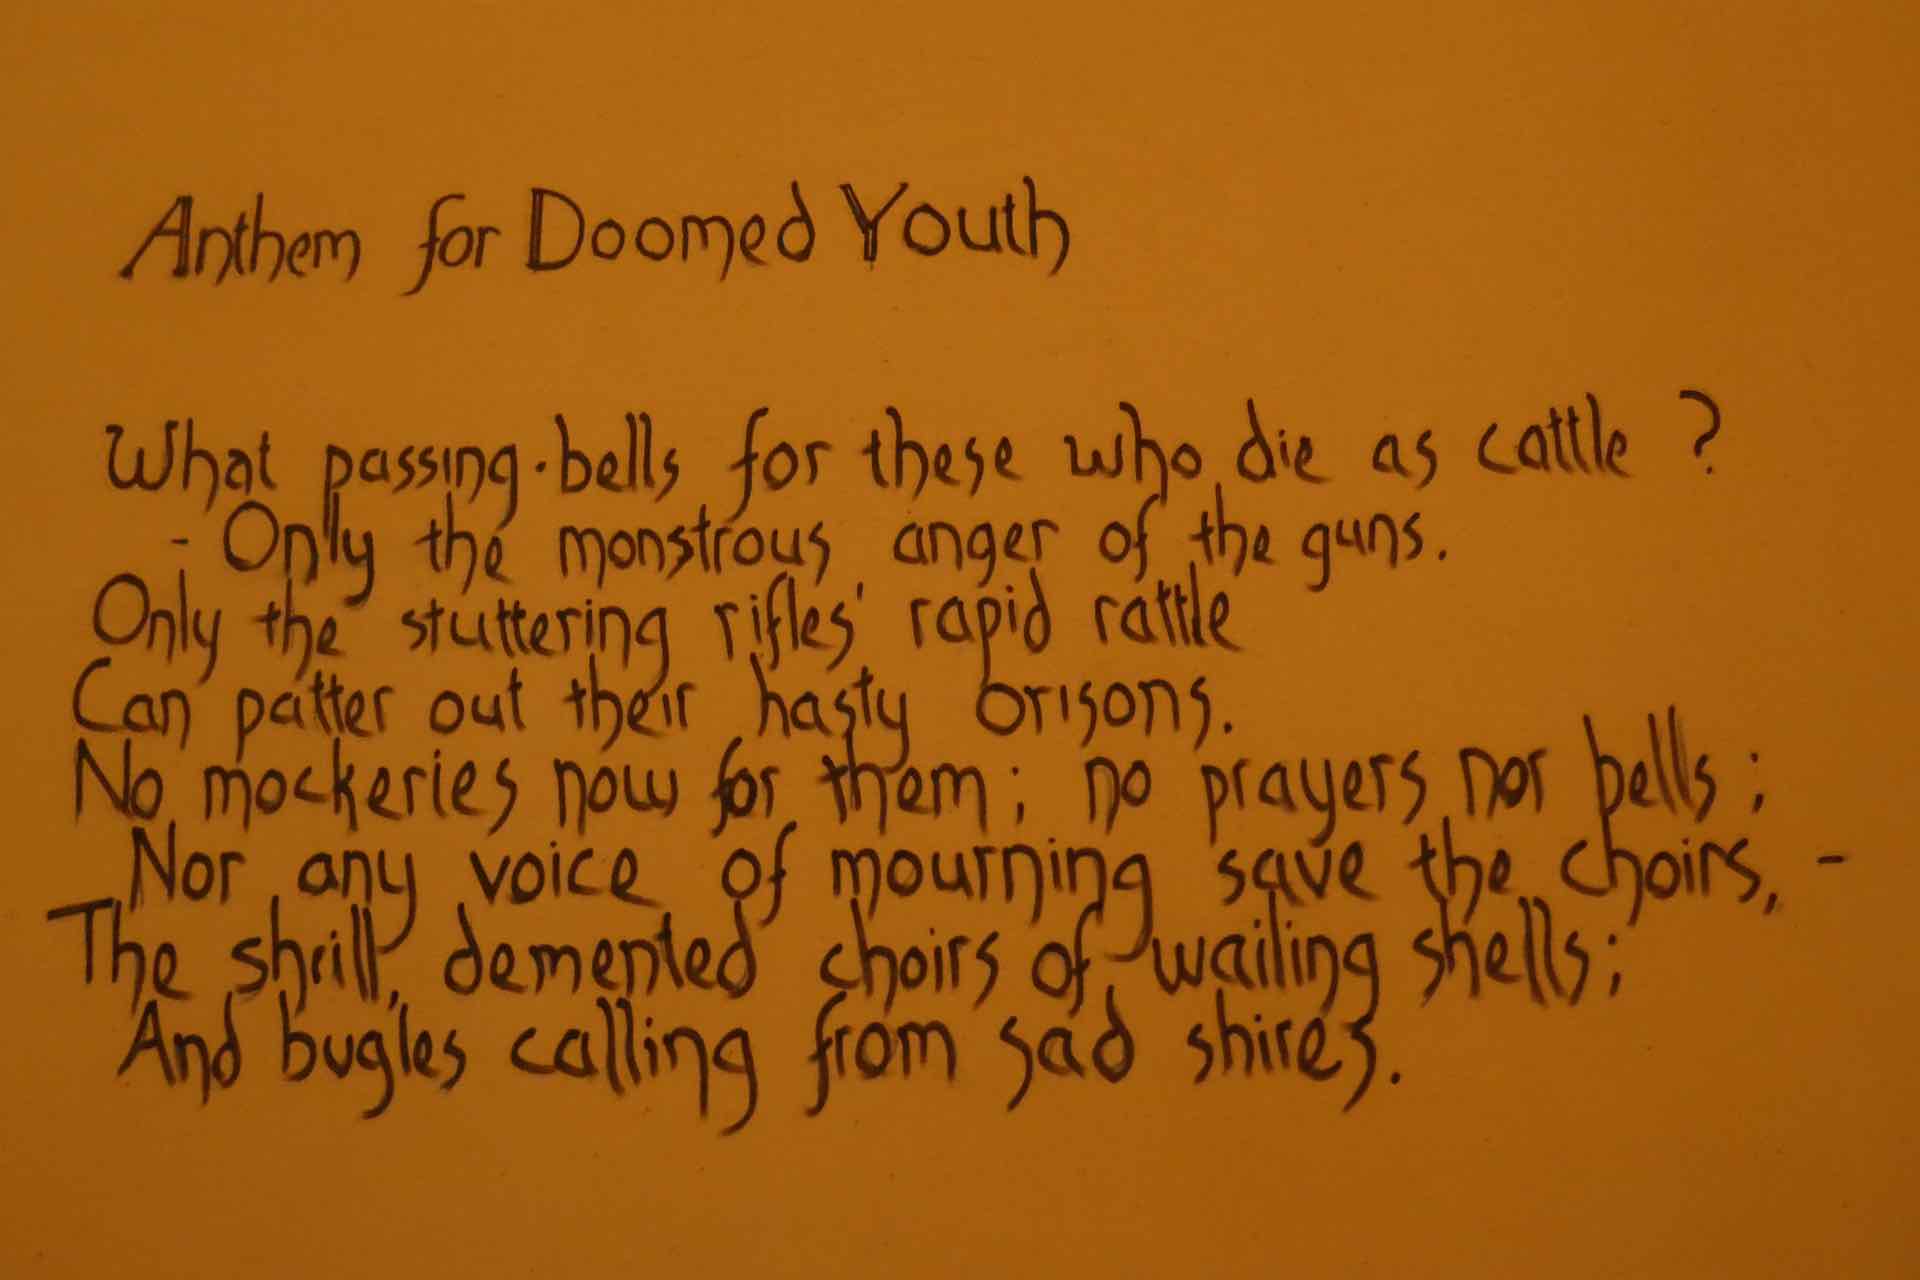 Anthem for Doomed Youth
What passing-bells for these who die as cattle ?
- Only the monstrous anger of the guns.
Only the stuttering rifles' rapid rattle
Can patter out their hasty orisons.
No mockeries now for them; no prayers nor bells;
Nor any voice of mourning save the choirs, -
The shrill, demented choirs of wailing shells;
And bugles calling from sad shires.